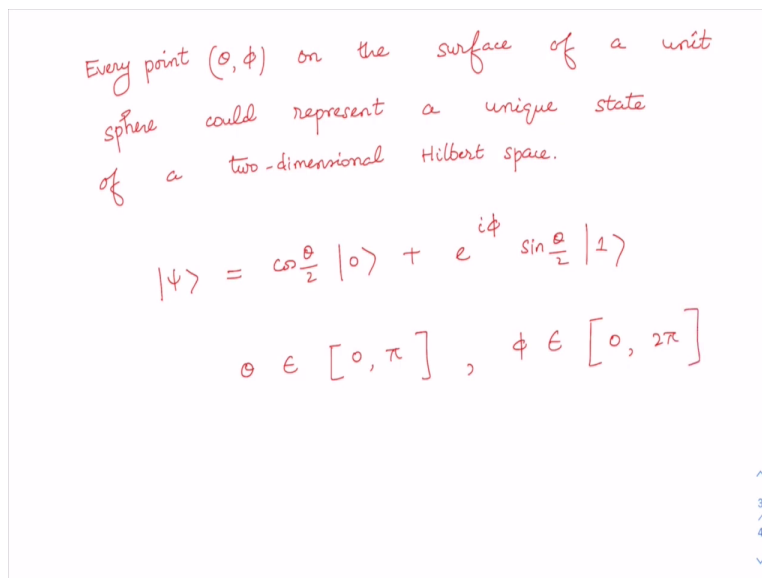 Every point (θ, φ) on the surface of a unit
sphere could represent a unique state
of a two-dimensional Hilbert space.
|ψ> = cos θ/2 |0> + e^{iφ} sin θ/2 |1>
θ ∈ [0, π] , φ ∈ [0, 2π]
3
4